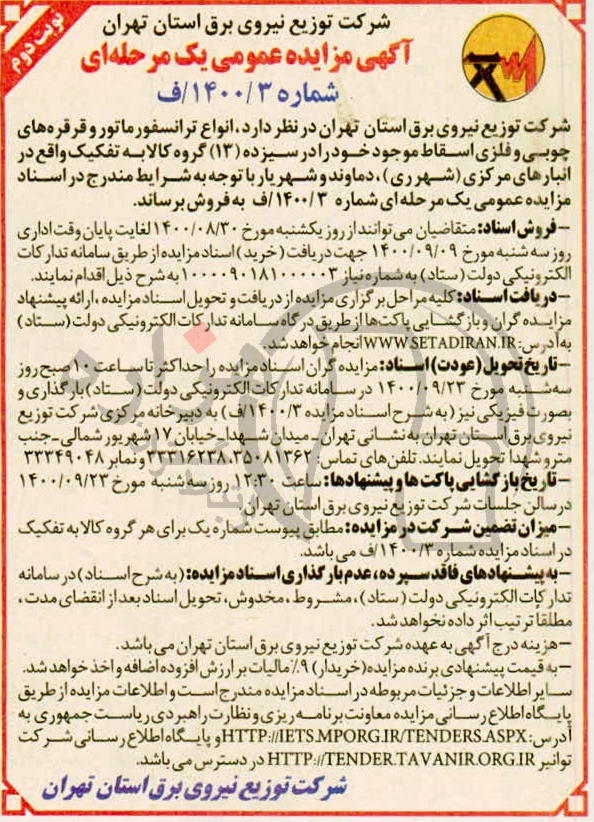 نوبت دوم
شرکت توزیع نیروی برق استان تهران
آگهی مزایده عمومی یک مرحله‌ای
شماره ۱۴۰۰/۳/ف
شرکت توزیع نیروی برق استان تهران در نظر دارد، انواع ترانسفورماتور و قرقره‌های
چوبی و فلزی اسقاط موجود خود را در سیزده (۱۳) گروه کالا به تفکیک واقع در
انبارهای مرکزی (شهر ری)، دماوند و شهریار با توجه به شرایط مندرج در اسناد
مزایده عمومی یک مرحله ای شماره ۱۴۰۰/۳/ف به فروش برساند.
- فروش اسناد: متقاضیان می‌توانند از روز یکشنبه مورخ ۱۴۰۰/۰۸/۳۰ لغایت پایان وقت اداری
روز سه شنبه مورخ ۱۴۰۰/۰۹/۰۹ جهت دریافت (خرید) اسناد مزایده از طریق سامانه تدارکات
الکترونیکی دولت (ستاد) به شماره نیاز ۱۰۰۰۰۹۰۱۸۱۰۰۰۰۰۳ به شرح ذیل اقدام نمایند.
- دریافت اسناد: کلیه مراحل برگزاری مزایده از دریافت و تحویل اسناد مزایده، ارائه پیشنهاد
مزایده گران و بازگشایی پاکت‌ها از طریق درگاه سامانه تدارکات الکترونیکی دولت (ستاد)
به آدرس: WWW.SETADIRAN.IR انجام خواهد شد.
- تاریخ تحویل (عودت) اسناد: مزایده گران اسناد مزایده را حداکثر تا ساعت ۱۰ صبح روز
سه شنبه مورخ ۱۴۰۰/۰۹/۲۳ در سامانه تدارکات الکترونیکی دولت (ستاد) بارگذاری و
بصورت فیزیکی نیز (به شرح اسناد مزایده ۱۴۰۰/۳/ف) به دبیرخانه مرکزی شرکت توزیع
نیروی برق استان تهران به نشانی تهران - میدان شهدا - خیابان ۱۷ شهریور شمالی - جنب
مترو شهدا تحویل نمایند. تلفن‌های تماس: ۳۵۰۸۱۳۶۲، ۳۳۳۱۶۲۳۸ و نمابر ۳۳۳۴۹۰۴۸
- تاریخ بازگشایی پاکت ها و پیشنهادها: ساعت ۱۲:۳۰ روز سه شنبه مورخ ۱۴۰۰/۰۹/۲۳
در سالن جلسات شرکت توزیع نیروی برق استان تهران.
- میزان تضمین شرکت در مزایده: مطابق پیوست شماره یک برای هر گروه کالا به تفکیک
در اسناد مزایده شماره ۱۴۰۰/۳/ف می باشد.
- به پیشنهادهای فاقد سپرده، عدم بارگذاری اسناد مزایده: (به شرح اسناد) در سامانه
تدارکات الکترونیکی دولت (ستاد)، مشروط، مخدوش، تحویل اسناد بعد از انقضای مدت،
مطلقا ترتیب اثر داده نخواهد شد.
- هزینه درج آگهی به عهده شرکت توزیع نیروی برق استان تهران می باشد.
- به قیمت پیشنهادی برنده مزایده (خریدار) ۹٪ مالیات بر ارزش افزوده اضافه و اخذ خواهد شد.
سایر اطلاعات و جزئیات مربوطه در اسناد مزایده مندرج است و اطلاعات مزایده از طریق
پایگاه اطلاع رسانی مزایده معاونت برنامه ریزی و نظارت راهبردی ریاست جمهوری به
آدرس: HTTP://IETS.MPORG.IR/TENDERS.ASPX و پایگاه اطلاع رسانی شرکت
توانیر HTTP://TENDER.TAVANIR.ORG.IR در دسترس می باشد.
شرکت توزیع نیروی برق استان تهران